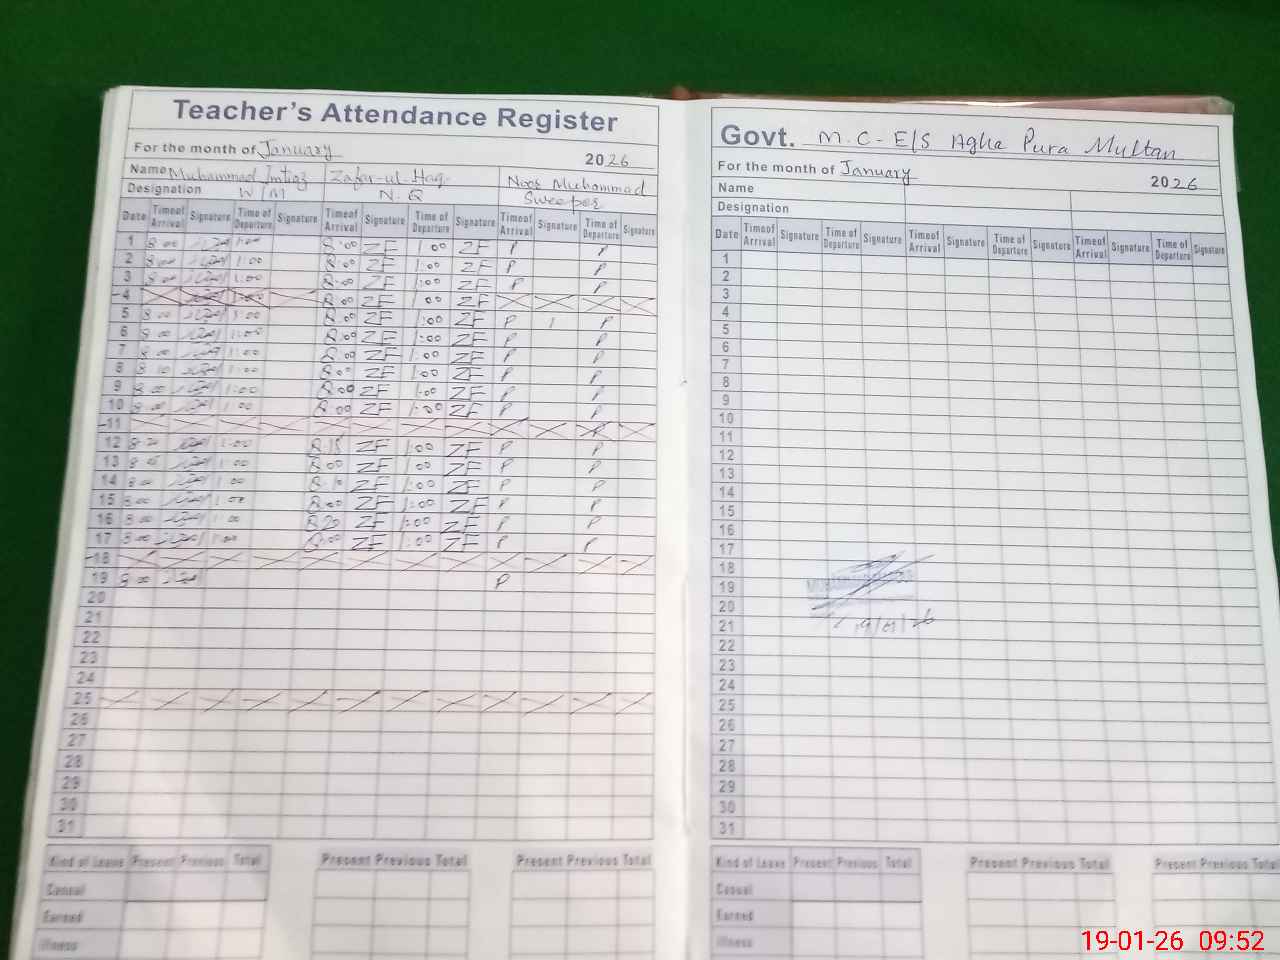 Teacher's Attendance Register
For the month of January 2026
Name Muhammad Imtiaz Zafar-ul-Haq Noor Muhammad
Designation W/M N.Q Sweeper
Date Time of Arrival Signature Time of Departure Signature Time of Arrival Signature Time of Departure Signature Time of Arrival Signature Time of Departure Signature
1 8:00 1:00 8:00 ZF 1:00 ZF P P
2 8:00 1:00 8:00 ZF 1:00 ZF P P
3 8:00 1:00 8:00 ZF 1:00 ZF P P
4 8:00 ZF 1:00 ZF
5 8:00 1:00 8:00 ZF 1:00 ZF P P
6 8:00 1:00 8:00 ZF 1:00 ZF P P
7 8:00 1:00 8:00 ZF 1:00 ZF P P
8 8:10 1:00 8:00 ZF 1:00 ZF P P
9 8:00 1:00 8:00 ZF 1:00 ZF P P
10 8:00 1:00 8:00 ZF 1:00 ZF P P
11
12 8:20 1:00 8:15 ZF 1:00 ZF P P
13 1:00 8:00 ZF 1:00 ZF P P
14 8:00 1:00 8:10 ZF 1:00 ZF P P
15 8:00 1:00 8:00 ZF 1:00 ZF P P
16 8:00 1:00 8:20 ZF 1:00 ZF P P
17 8:00 1:00 8:00 ZF 1:00 ZF P P
18
19 8:00 P
20
21
22
23
24
25
26
27
28
29
30
31
Kind of Leave Present Previous Total Present Previous Total Present Previous Total
Casual
Earned
Illness
Govt. M.C-E/S Agha Pura Multan
For the month of January 2026
Name
Designation
Date Time of Arrival Signature Time of Departure Signature Time of Arrival Signature Time of Departure Signature Time of Arrival Signature Time of Departure Signature
1
2
3
4
5
6
7
8
9
10
11
12
13
14
15
16
17
18
19
20
21
19/01/26
22
23
24
25
26
27
28
29
30
31
Kind of Leave Present Previous Total Present Previous Total Present Previous Total
Casual
Earned
Illness
19-01-26 09:52